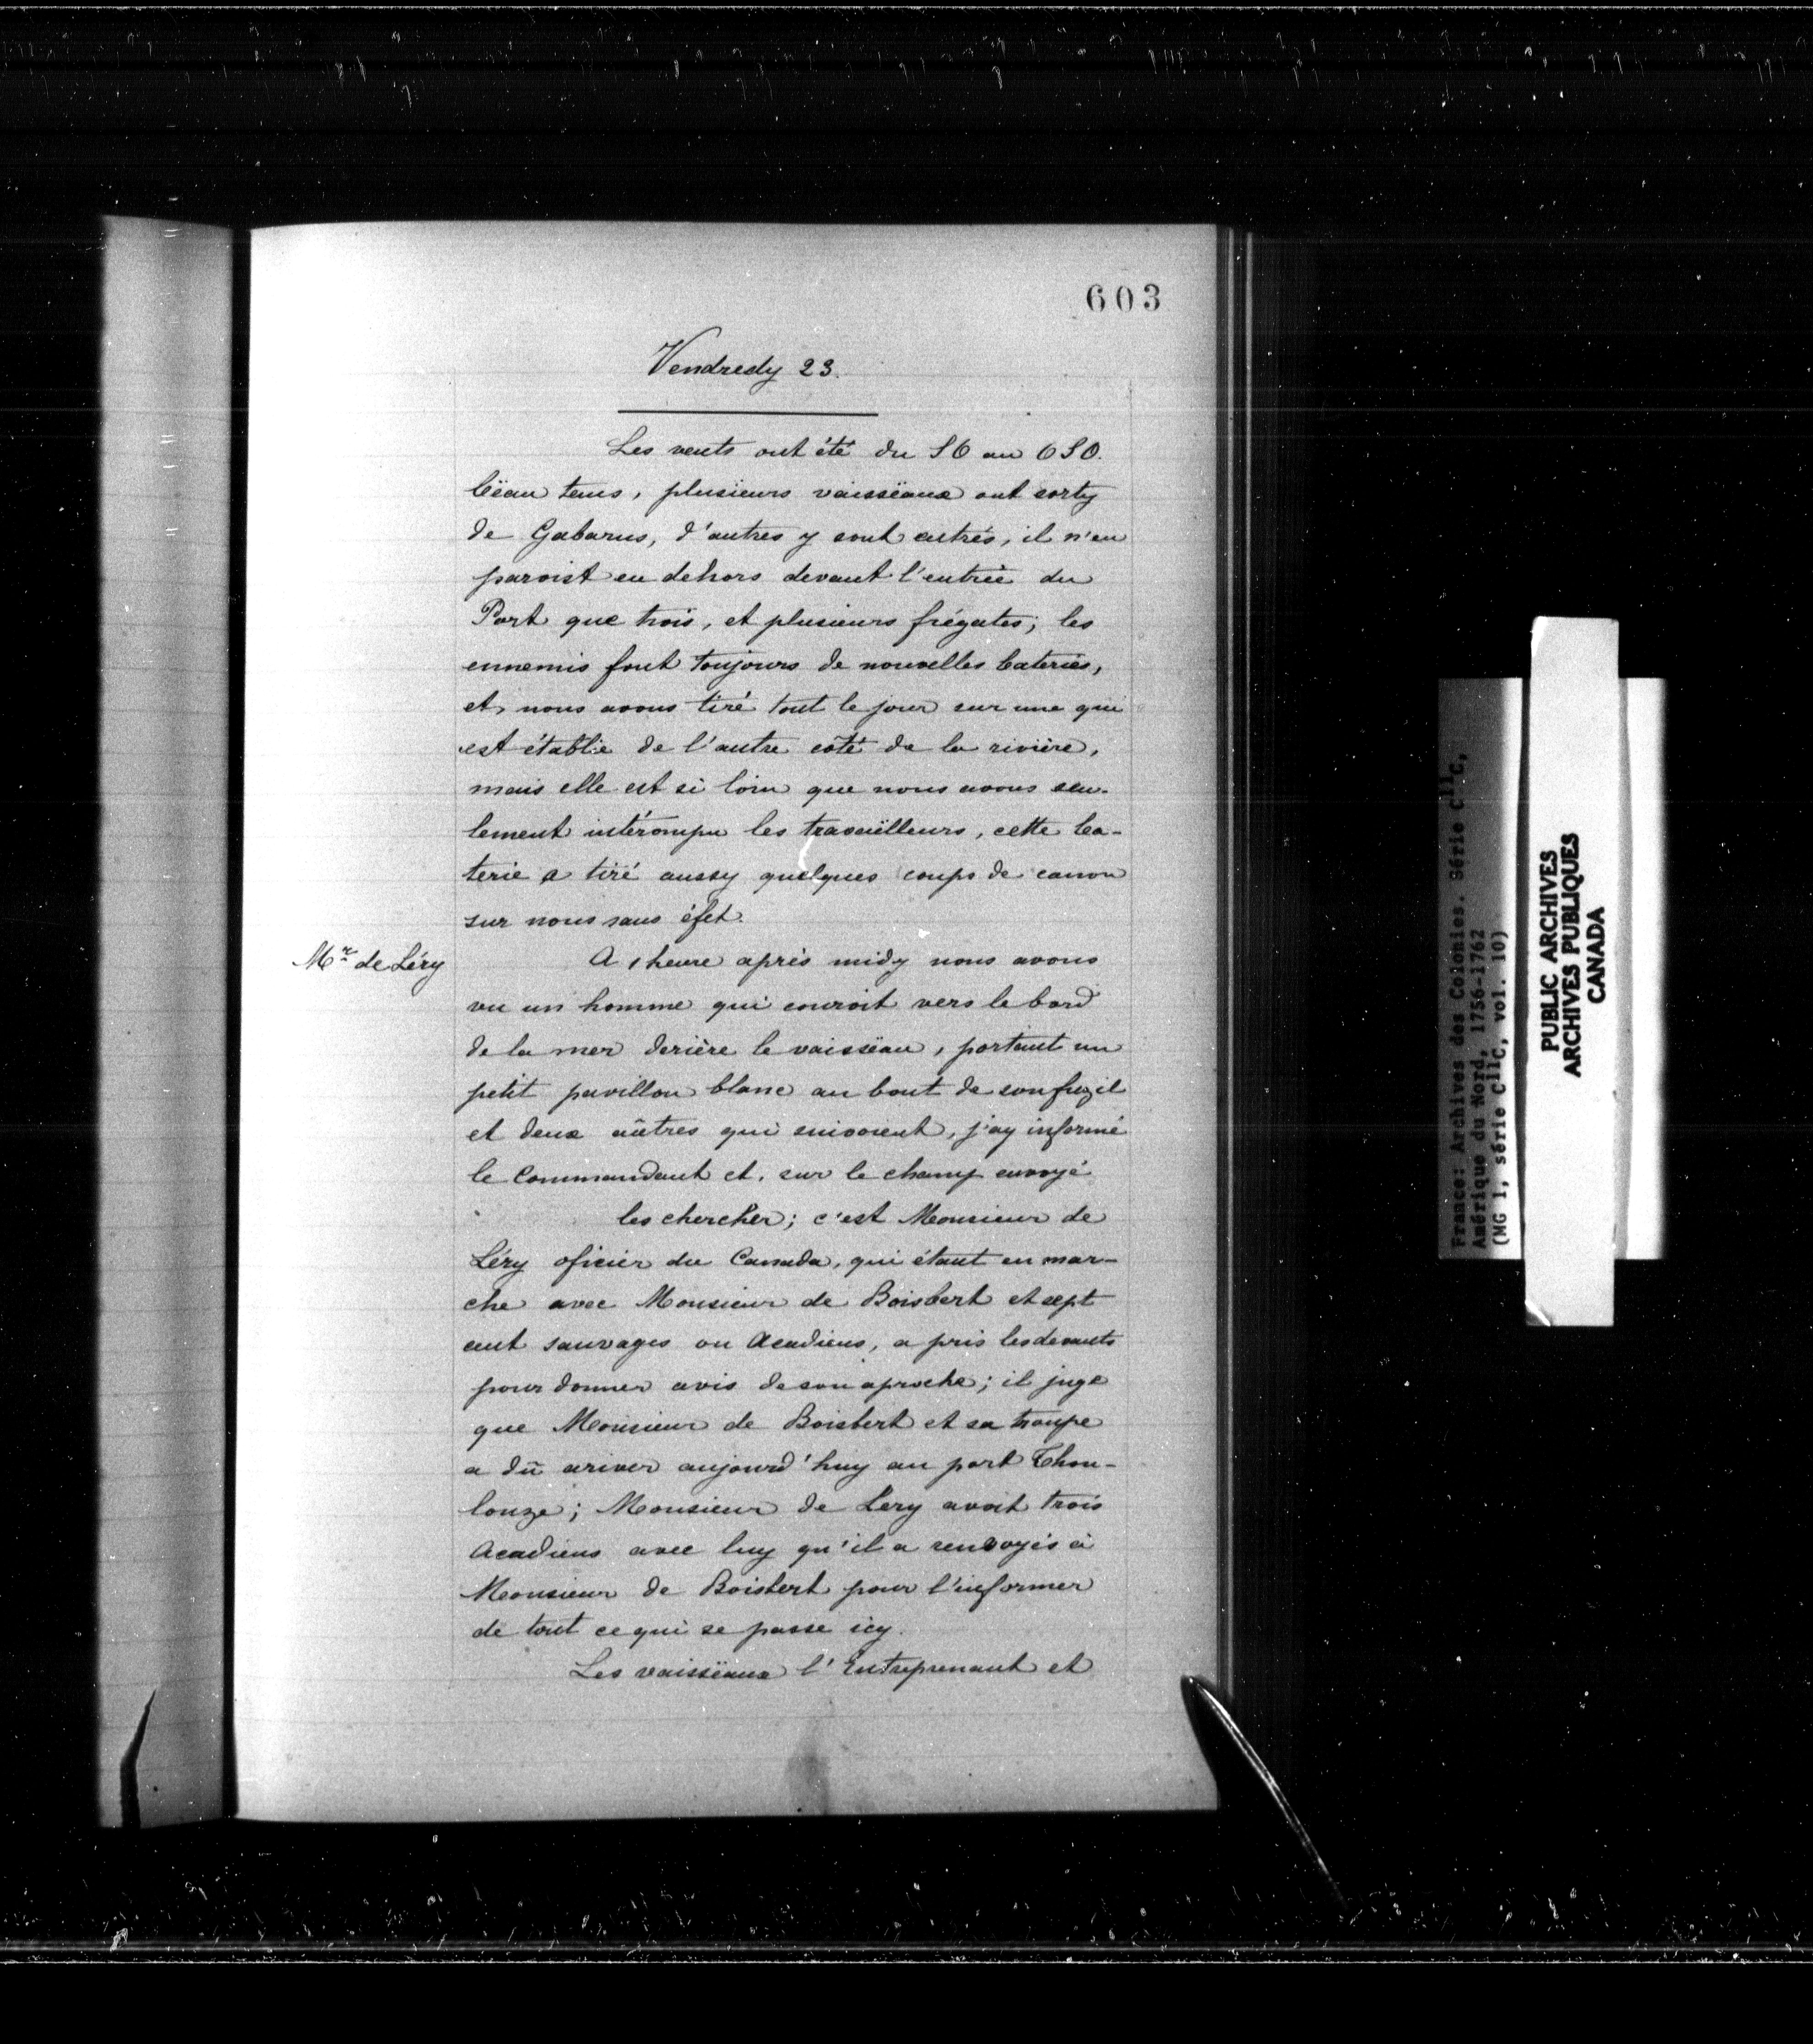 603
Vendredy 23.
Les vents ont été du SO au OSO.
bëau tems, plusieurs vaissëaux ont sorty
de Gabarus, d'autres y sont entrés, il n'en
paroist en dehors devant l'entrée du
Port que trois, et plusieurs frégates; les
ennemis font toujours de nouvelles bateries,
et nous avons tiré tout le jour sur une qui
est établie de l'autre côté de la rivière,
mais elle est si loin que nous avons seu-
lement intérompu les travaïlleurs, cette ba-
terie a tiré aussy quelques coups de canon
sur nous sans éfet.
Mr de Léry
A 1 heure après midy nous avons
vu un homme qui couroit vers le bord
de la mer derière le vaissëau, portant un
petit pavillon blanc au bout de son fuzil
et deux aûtres qui suivoient, j'ay informé
le Commandant et, sur le champ envoyé
les chercher; c'est Monsieur de
Léry oficier du Canada, qui étant en mar-
che avec Monsieur de Boisbert et sept
cent sauvages ou Acadiens, a pris les devants
pour donner avis de son aproche; il juge
que Monsieur de Boisbert et sa troupe
a dû ariver aujourd'huy au port Thou-
louze; Monsieur de Lery avoit trois
Acadiens avec luy qu'il a renvoyés à
Monsieur de Boisbert pour l'informer
de tout ce qui se passe icy.
Les vaissëaux l'Entreprenant et
France: Archives des Colonies. Série C11C,
Amérique du Nord, 1756-1762
(MG 1, série C11C, vol. 10)
PUBLIC ARCHIVES
ARCHIVES PUBLIQUES
CANADA